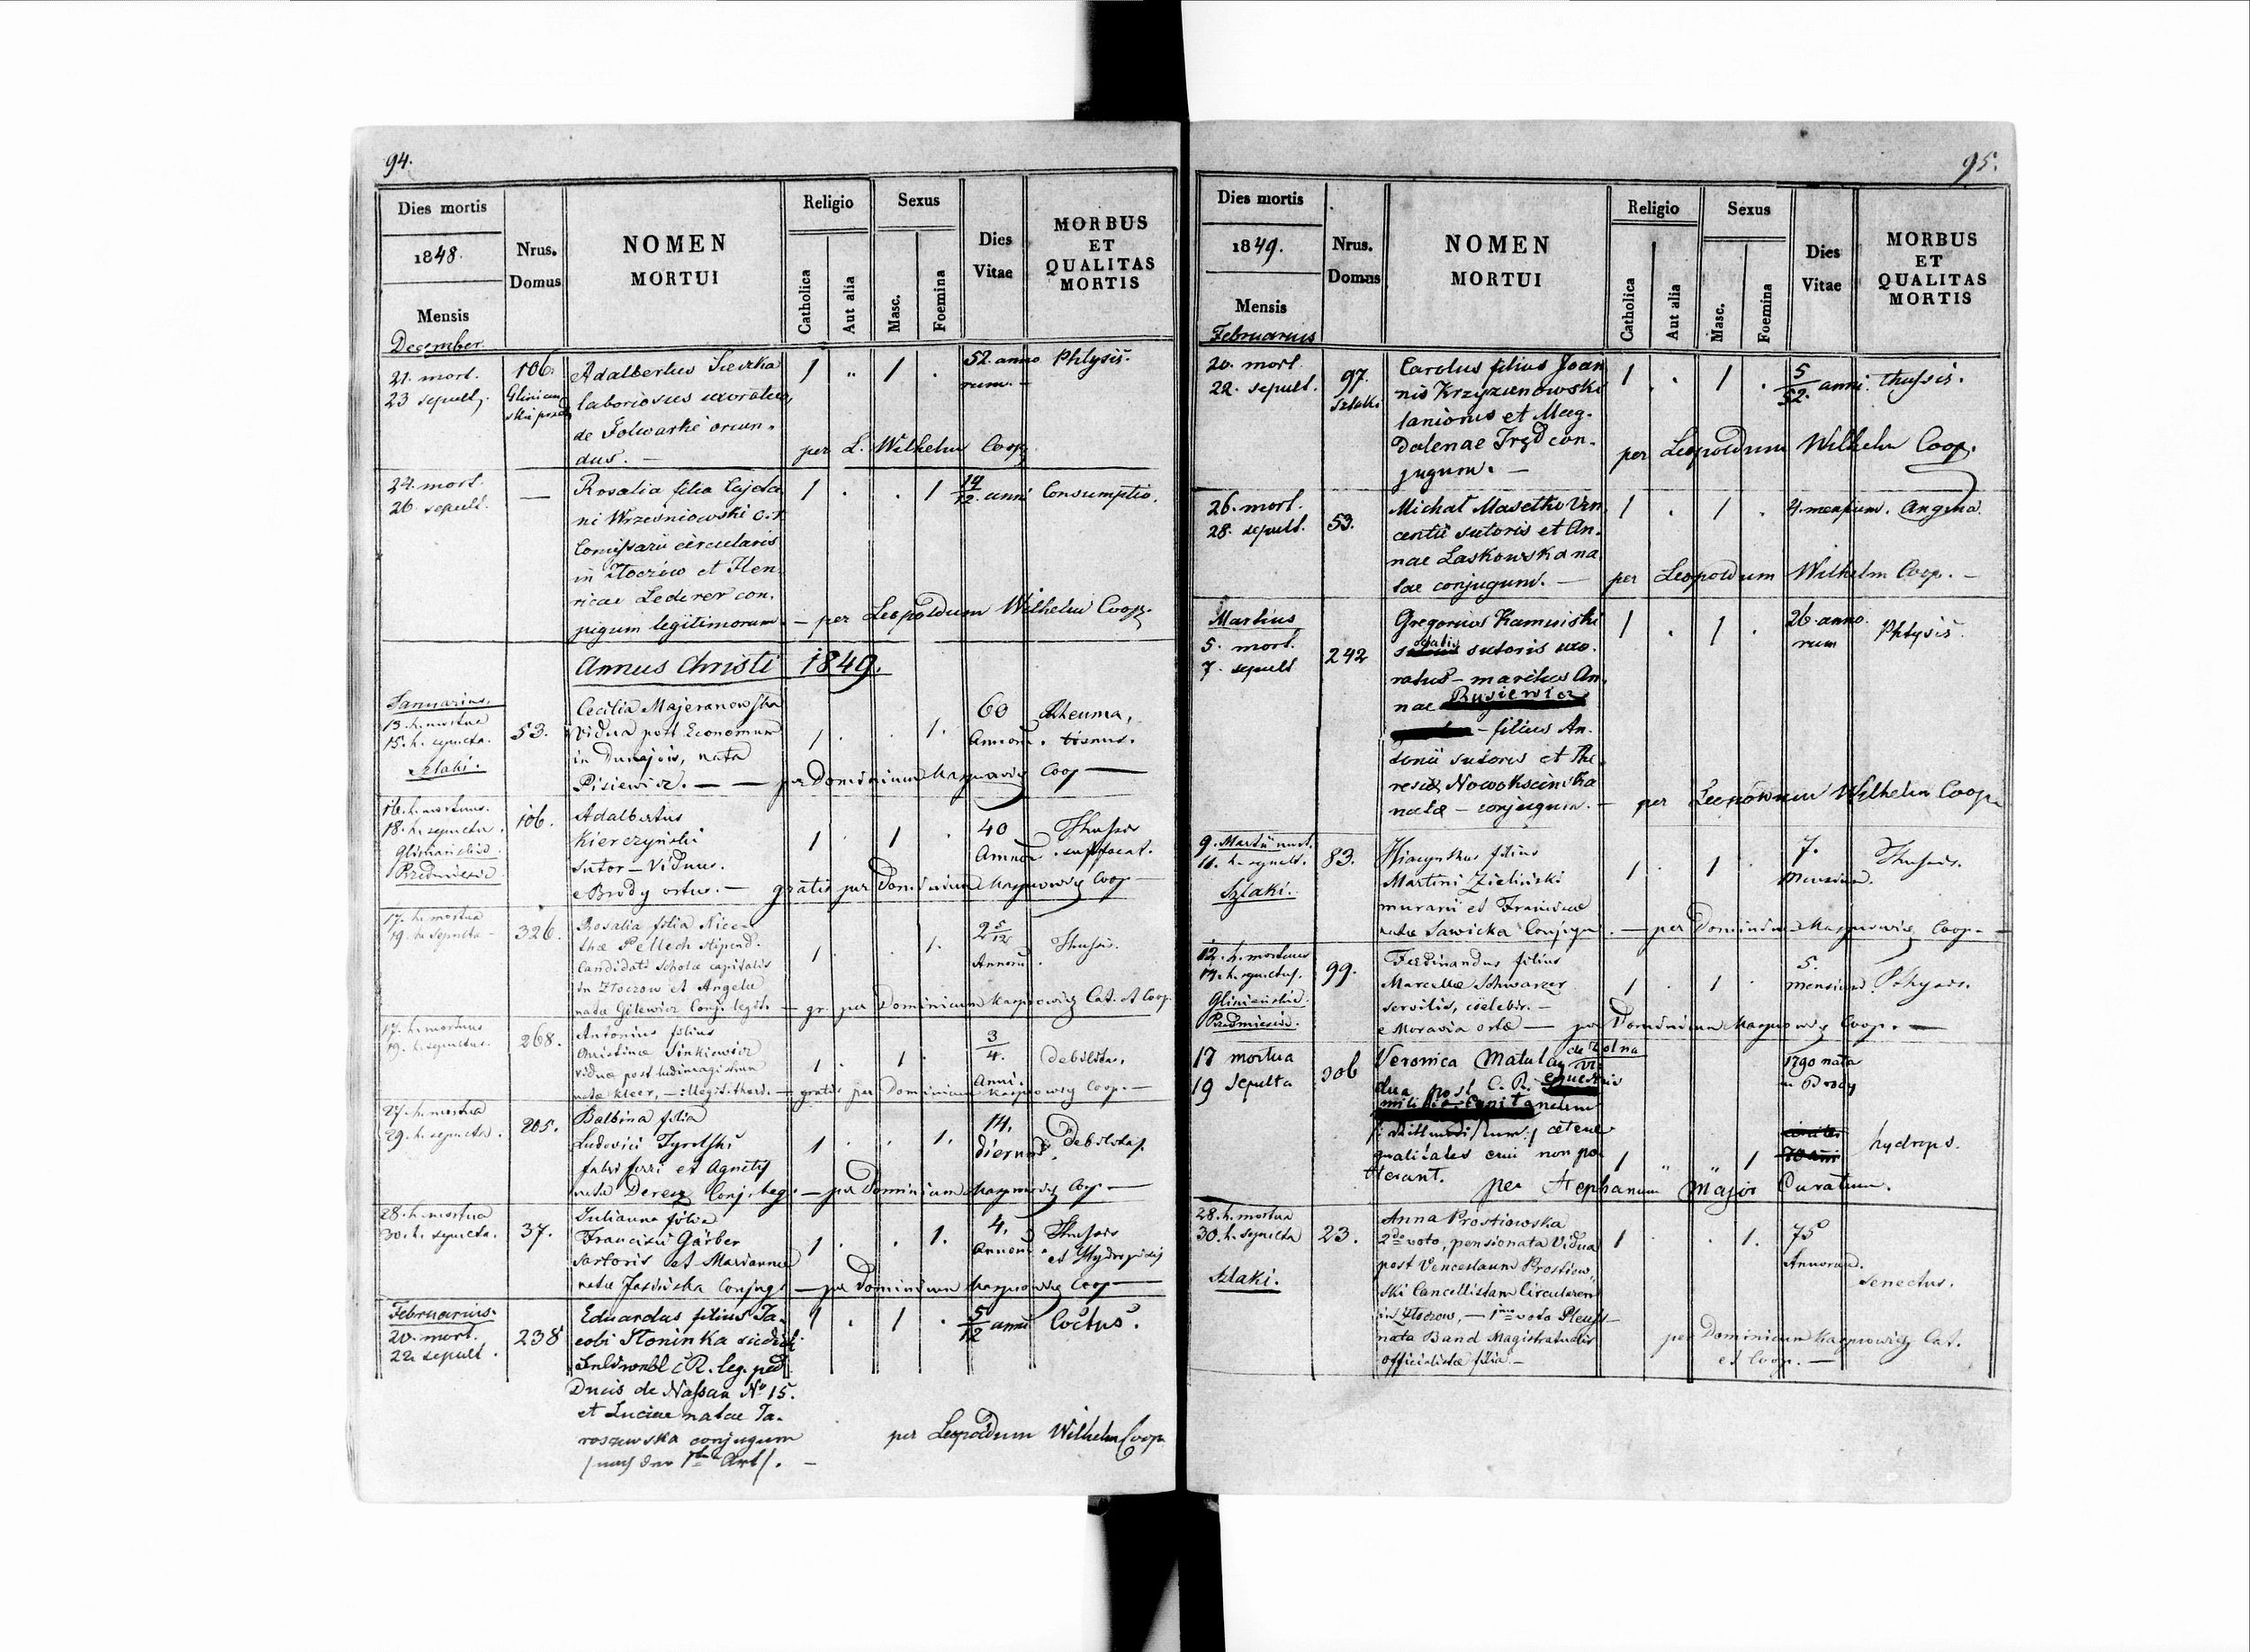 94.
Dies mortis
1848.
Mensis
December
Nrus.
Domus
NOMEN
MORTUI
Religio
Catholica
Aut alia
Sexus
Masc.
Foemina
Dies
Vitae
MORBUS
ET
QUALITAS
MORTIS
21. mort.
23 sepult.
106.
Adalbertus
laboriosus uxoratus
de Folwarki oriun-
dus. —
1 " 1 .
52. anno
rum. —
Phtysis.
per L. Wilhelm Coop.
24. mort.
26. sepult.
—
Rosalia filia Cajeta
ni Wrześniowski c. r.
Comissarii circularis
in Złoczów et Hen
ricae Lederer con.
jugum legitimorum. — per Leopoldum Wilhelm Coop.
1 . . 1
14/12. anni
Consumptio.
Annus Christi 1849.
Januarius.
13. h. mortua
15. h. sepulta.
Szlaki.
53.
Cecilia Majeranowska
Vidua post Economum
in Dunajow, nata
Pisiewicz. — — per Dominicum Kasprowicz Coop —
1 . . 1.
60
Annoru.
Rheuma,
tismus.
16. h. mortuus.
18. h. sepultus.
Gliniańskie
Przedmieście
106.
Adalbertus
Kierczyński
Sutor — Viduus.
e Brody ortus. — gratis per Dominicum Kasprowicz Coop —
1 . 1 .
40
Annor.
Thussis
suffocat.
17. h. mortua
19. h. sepulta —
326.
Rosalia filia Nice-
thæ Pellech stipend.
Candidati Scholæ capitalis
in Złoczow et Angelæ
natæ Gilewicz Conj. legit. — gr. per Dominicum Kasprowicz Cat. et Coop.
1 . . 1.
2 5/12
Annoru.
Thussis.
17. h. mortuus
19. h. sepultus.
268.
Antonius filius
Christinæ Sinkiewicz
viduæ post ludimagistrum
natæ Kleer, — : Illegit. thori. — gratis per Dominicum Kasprowicz Coop. —
1 . 1 .
3/4.
Anni.
debilitas.
27. h. mortua
29. h. sepulta.
205.
Balbina filia
Ludovici Tyrolski
fabri ferri et Agnetis
natæ Derecz Conj. leg. — per Dominicum Kasprowicz Coop. —
1 . . 1.
14.
dierum.
debilitas.
28. h. mortua
30. h. sepulta.
37.
Julianna filia
Francisci Gärber
sartoris et Mariannæ
natæ Jasińska Conjug. — per Dominicum Kasprowicz Coop —
1 . . 1.
4.
Annoru.
Thussis
et Hydropisis
Februarius.
20. mort.
22. sepult.
238
Eduardus filius Ja-
cobi Słoninka
C R. leg. ped.
Ducis de Nassau No 15.
et Luciae natae Ja-
roszewska conjugum
1 . 1 .
5/12 anni
per Leopoldum Wilhelm Coop
95.
Dies mortis
1849.
Mensis
Februarius
Nrus.
Domus
NOMEN
MORTUI
Religio
Catholica
Aut alia
Sexus
Masc.
Foemina
Dies
Vitae
MORBUS
ET
QUALITAS
MORTIS
20. mort.
22. sepult.
97.
Szlaki
Carolus filius Joan
nis Krzyżanowski
lanionis et Mag-
dalenae con-
jugum. —
1 . 1 .
5/52. anni.
thussis.
per Leopoldum Wilhelm Coop.
26. mort.
28. sepult.
53.
Michał Masethko Vin
centii sutoris et An-
nae Laskowska na
tae conjugum. — per Leopoldum Wilhelm Coop. —
1 . 1 .
4. mensium.
Angina.
Martius
5. mort.
7. sepult
242
Gregorius Kaminski
sutoris uxo-
ratus — maritus An-
nae Rusiewicz
— filius An-
tonii sutoris et The-
resiæ
natæ — conjugum. — per Leopoldum Wilhelm Coop.
1 . 1 .
26. anno-
rum
Phtysis.
9. Martii mort.
11. h. sepult.
Szlaki.
83.
Hiacynthus filius
Martini Zieliński
murarii et Franciscæ
natæ Sawicka Conjugu. — per Dominicum Kasprowicz Coop. —
1 . 1 .
7.
Mensium.
Thussis.
12. h. mortuus
14. h. sepultus.
Gliniańskie
Przedmieście.
99.
Ferdinandus filius
Marcellæ Schwarzer
servilis, cœlebis. —
e Moravia ortæ — per Dominicum Kasprowicz Coop. —
1 . 1 .
5.
mensium.
Phtysis.
17 mortua
19 Sepulta
306
Veronica Matulay de Zolna vi
dua post C. R. equestris
militiæ Capitaneum
cetere
qualitates erui non po-
terant. per Stephanum Major Curatum.
1 " " 1
1790 nata
in Brody
hydrops.
28. h. mortua
30. h. sepulta
Szlaki.
23.
Anna Prostiowska
2do voto, pensionata Vidua
post Venceslaum Prostiow-
ski Cancellistam Circularem
in Złoczow, — 1mo voto
nata Band Magistratualis
officialistæ filia —
1 . . 1.
75
Annorum.
Senectus.
per Dominicum Kasprowicz Cat.
et Coop. —